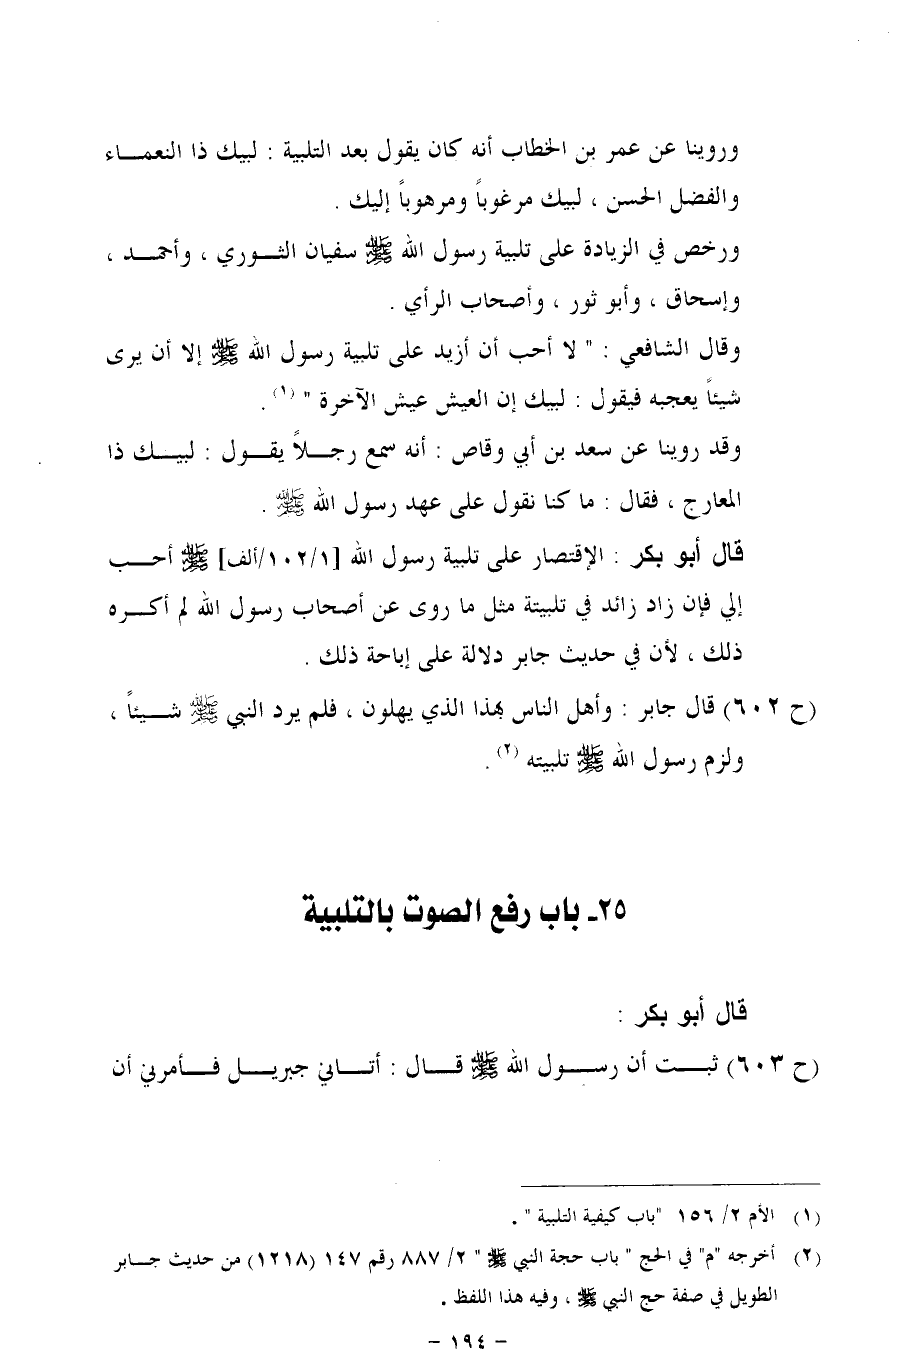 وروينا عن عمر بن الخطاب أنه كان يقول بعد التلبية : لبيك ذا النعمـــاء
والفضل الحسن ، لبيك مرغوباً ومرهوباً إليك .
ورخص في الزيادة على تلبية رسول الله ﷺ سفيان الثــوري ، وأحمــد ،
وإسحاق ، وأبو ثور ، وأصحاب الرأي .
وقال الشافعي : " لا أحب أن أزيد على تلبية رسول الله ﷺ إلا أن يرى
شيئاً يعجبه فيقول : لبيك إن العيش عيش الآخرة " (١) .
وقد روينا عن سعد بن أبي وقاص : أنه سمع رجــلاً يقــول : لبيــك ذا
المعارج ، فقال : ما كنا نقول على عهد رسول الله ﷺ .
قال أبو بكر : الإقتصار على تلبية رسول الله [١/١٠٢/ألف] ﷺ أحــب
إلي فإن زاد زائد في تلبيتة مثل ما روى عن أصحاب رسول الله لم أكــره
ذلك ، لأن في حديث جابر دلالة على إباحة ذلك .
(ح ٦٠٢) قال جابر : وأهل الناس بهذا الذي يهلون ، فلم يرد النبي ﷺ شــيئاً ،
ولزم رسول الله ﷺ تلبيته (٢) .
٢٥ـ باب رفع الصوت بالتلبية
قال أبو بكر :
(ح ٦٠٣) ثبــت أن رســول الله ﷺ قــال : أتــاني جبريــل فــأمرني أن
(١) الأم ٢/ ١٥٦ "باب كيفية التلبية " .
(٢) أخرجه "م" في الحج " باب حجة النبي ﷺ " ٢/ ٨٨٧ رقم ١٤٧ (١٢١٨) من حديث جــابر
الطويل في صفة حج النبي ﷺ ، وفيه هذا اللفظ .
- ١٩٤ -